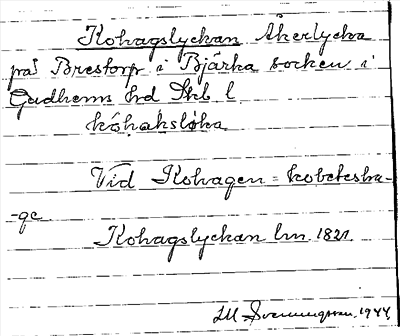 Kohagslyckan Åkerlycka
på Brestorp i Bjärka socken i
Gudhems hd Skb l.
kóhàksløka
Vid Kohagen = kobetesha-
-ge
Kohagslyckan lm. 1821.
1944.